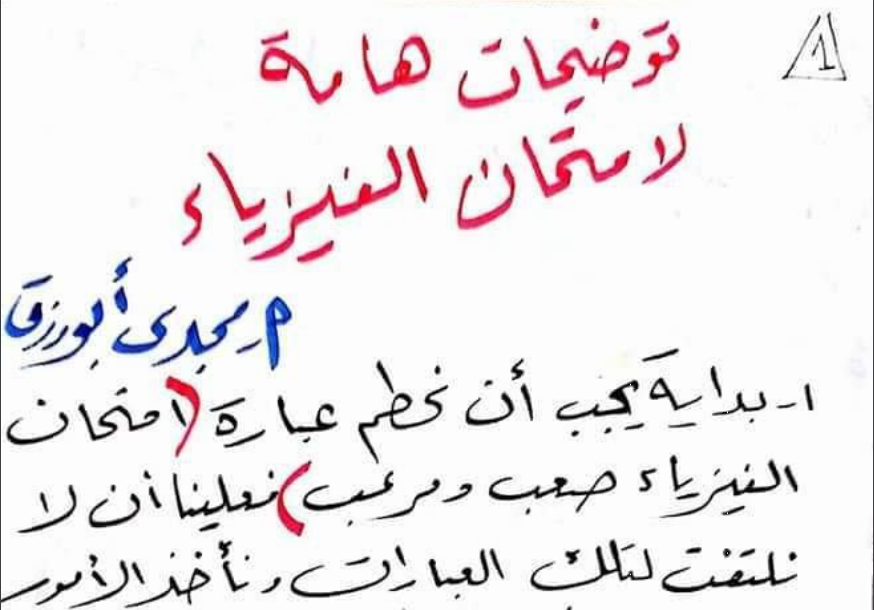 1
توضيحات هامة
لامتحان الفيزياء
م. مجدى أبورزق
١- بداية يجب أن نحطم عبارة (امتحان
الفيزياء صعب ومرعب) فعلينا أن لا
نلتفت لتلك العبارات ونأخذ الأمور